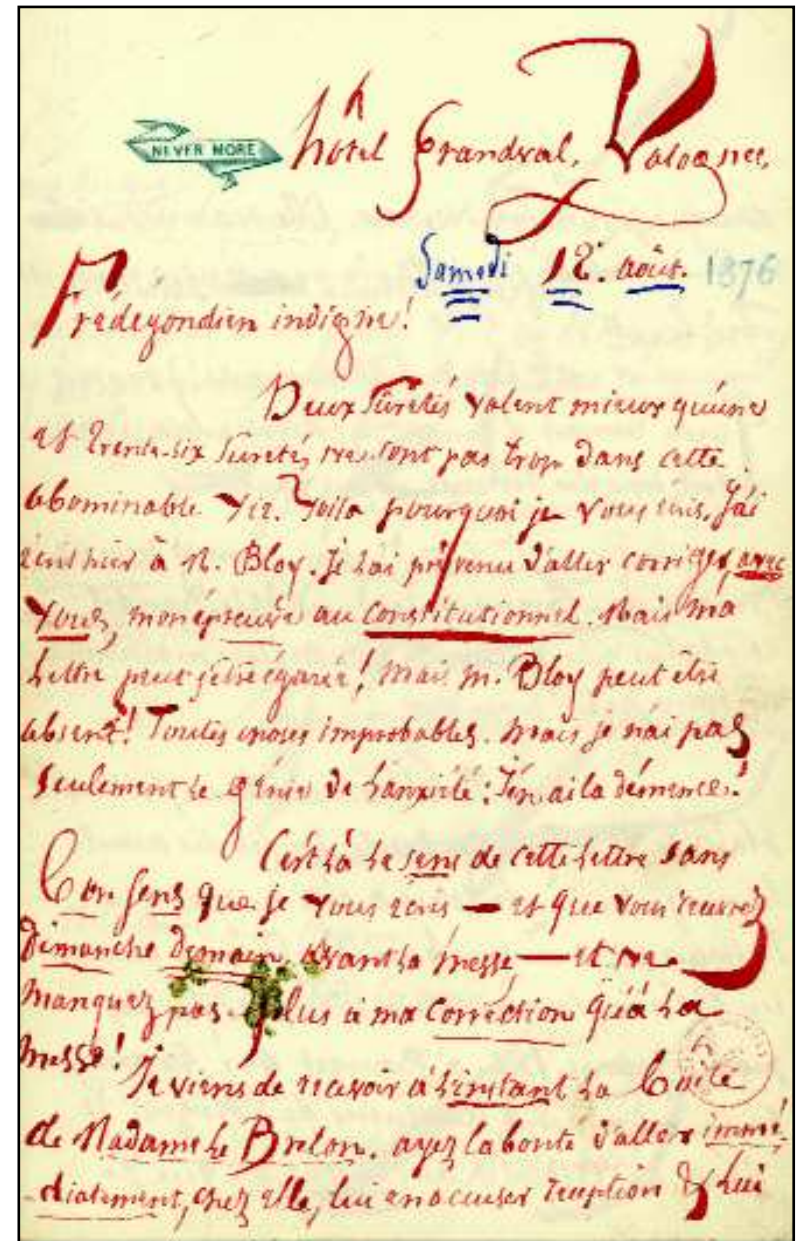 NEVER MORE
hôtel Grandval, Valognes,
Samedi 12. août. 1876
Frédégondien indigne!
Deux Suretés valent mieux qu'une
et trente-six Suretés ne sont pas trop dans cette
abominable vie. Voila pourquoi je vous écris. J'ai
écrit hier à M. Bloy. Je l'ai prévenu d'aller corriger, avec
vous, mon épreuve au Constitutionnel. Mais ma
Lettre peut s'être égarée! Mais M. Bloy peut être
absent! Toutes choses improbables. Mais je n'ai pas
seulement le génie de l'anxiété: J'en ai la démence!
C'est là le sens de cette lettre sans
bon sens que je vous écris — et que vous recevrez
Dimanche demain, avant la messe, — et ne
manquez pas plus à ma Correction qu'à la
messe!
Je viens de recevoir à l'instant la boite
de Madame Le Breton. ayez la bonté d'aller immé-
-diatement, chez elle, lui en accuser reception & lui